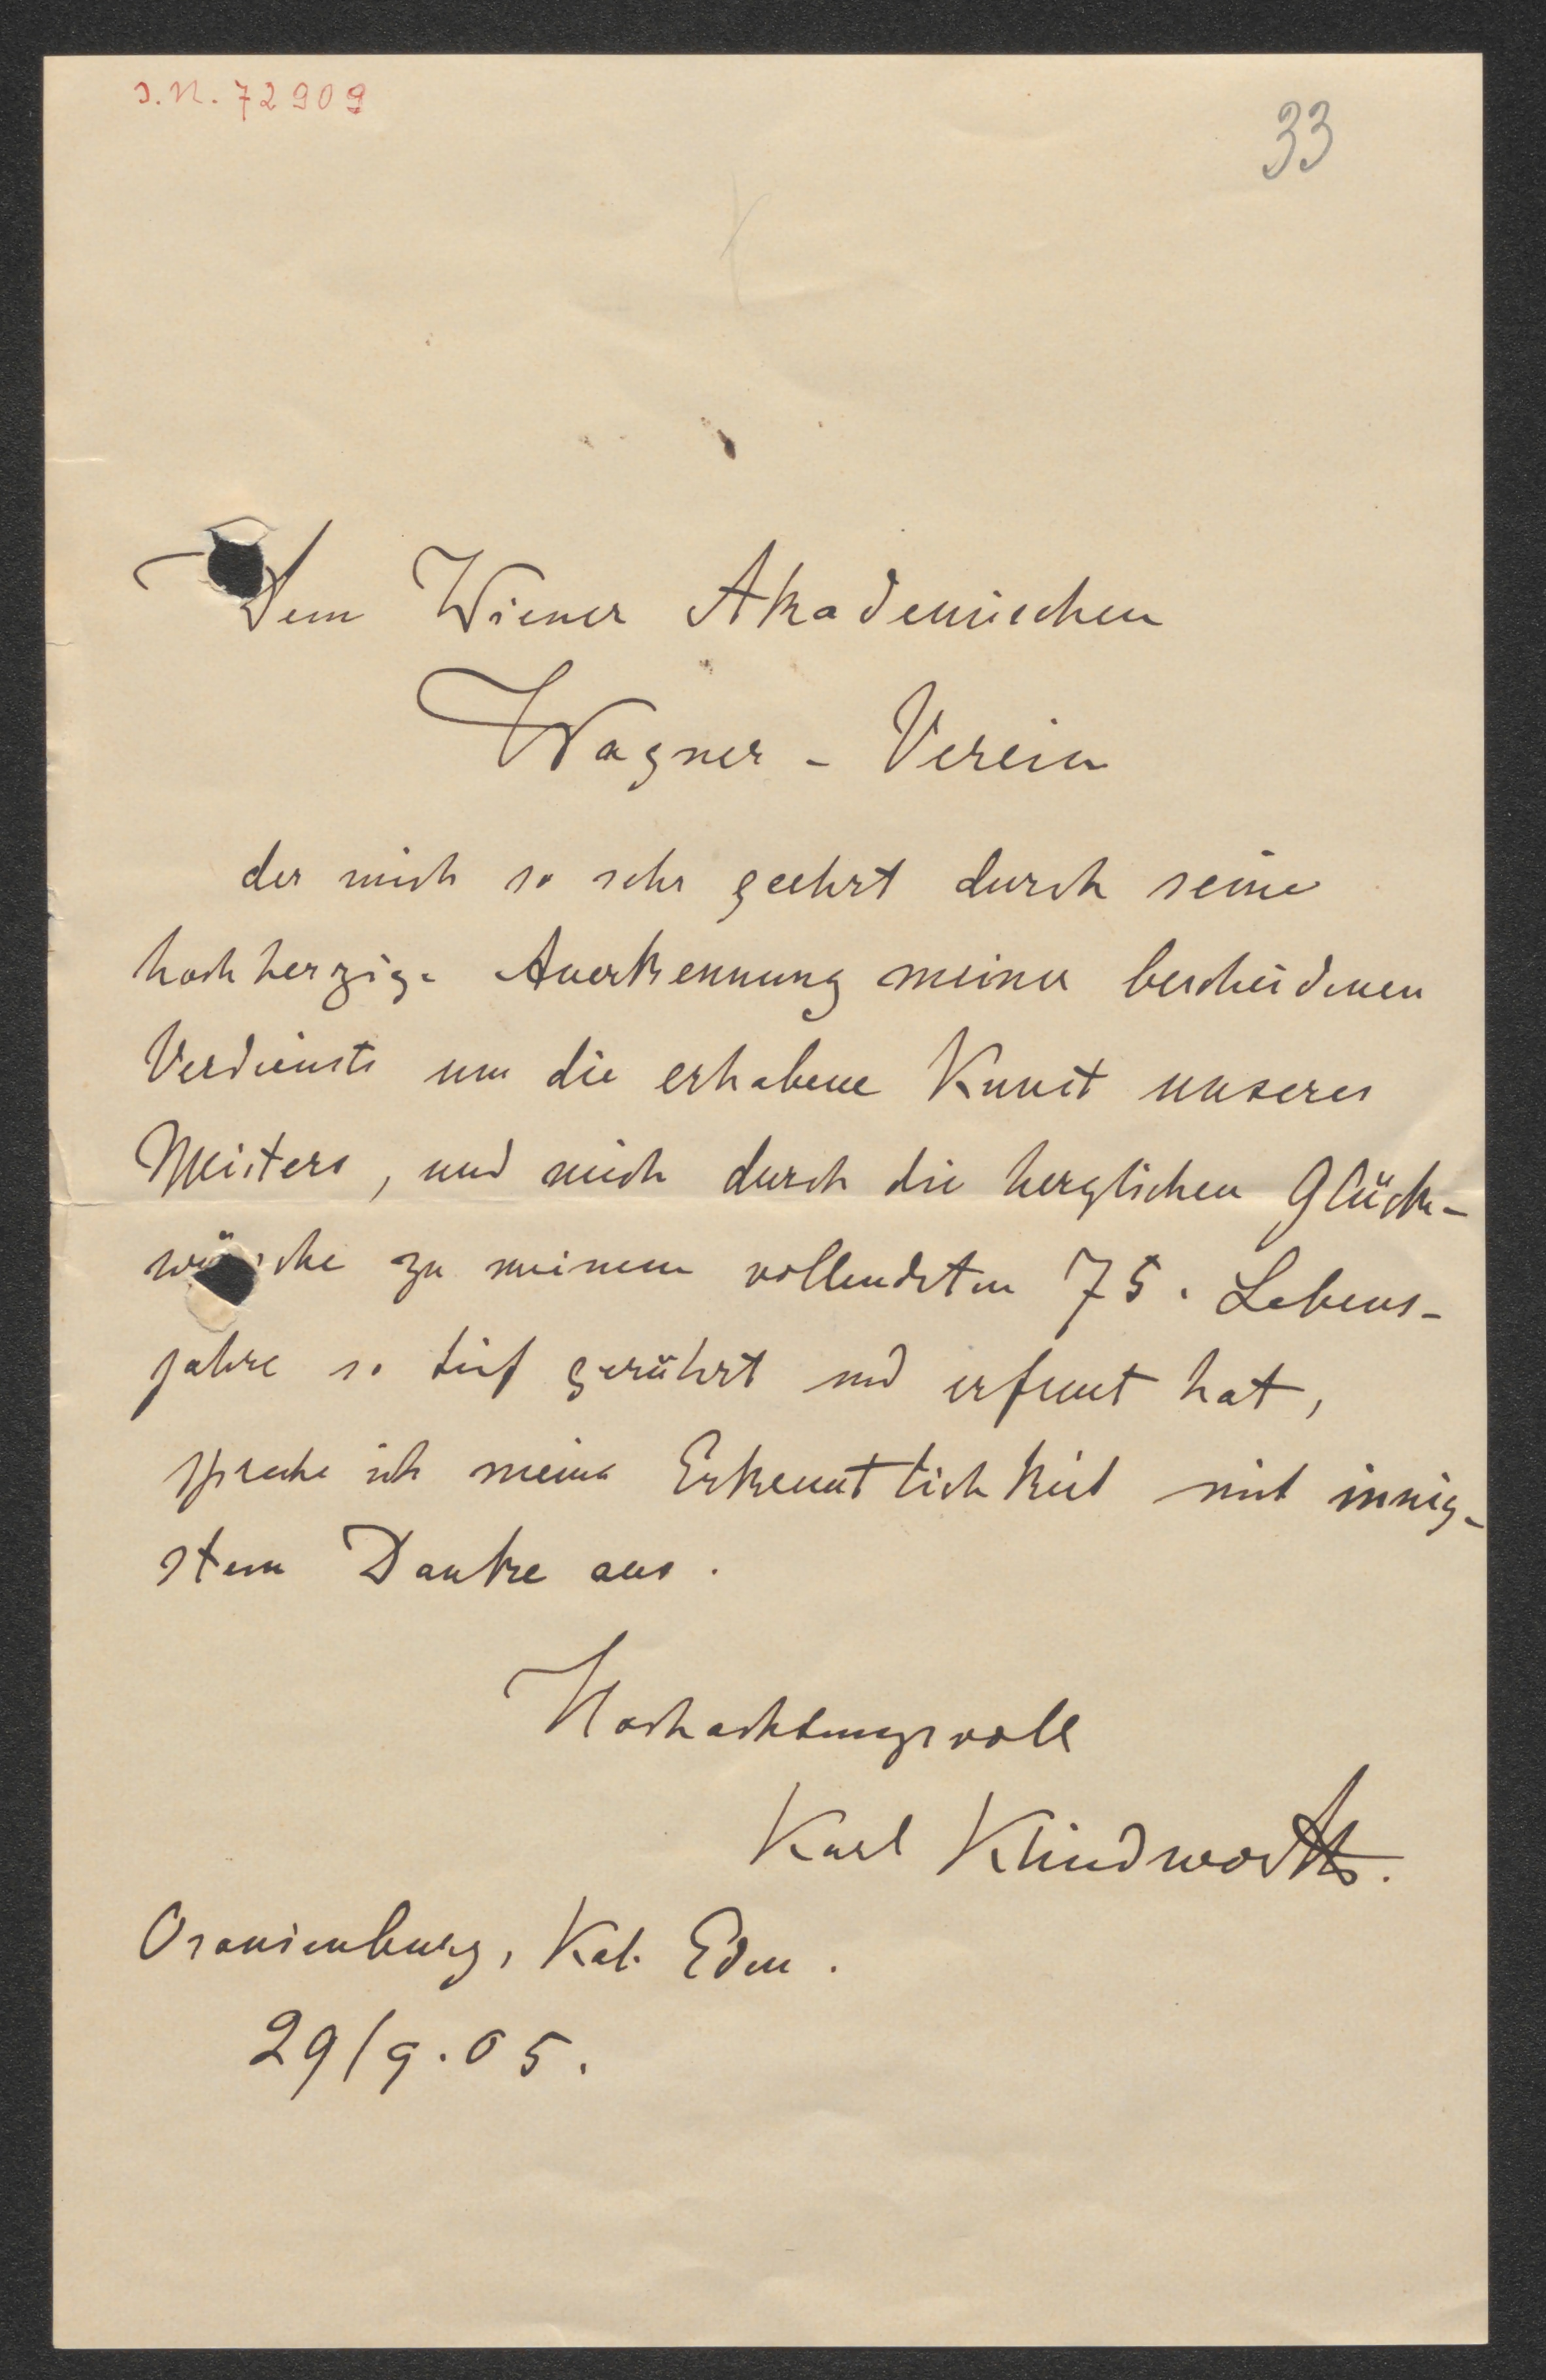 J.N. 72909
33
Dem Wiener Akademischen
Wagner - Verein
der mich so sehr geehrt durch seine
hochherzige Anerkennung meiner bescheidenen
Verdienste um die erhabene Kunst unseres
Meisters, und mich durch die herzlichen Glück-
wünsche zu meinem vollendeten 75. Lebens-
jahre so tief gerührt und erfreut hat,
spreche ich meine Erkenntlichkeit mit innig-
stem Danke aus.
Hochachtungsvoll
Karl Klindworth.
Oranienburg, Kol. Eden.
29/9.05.